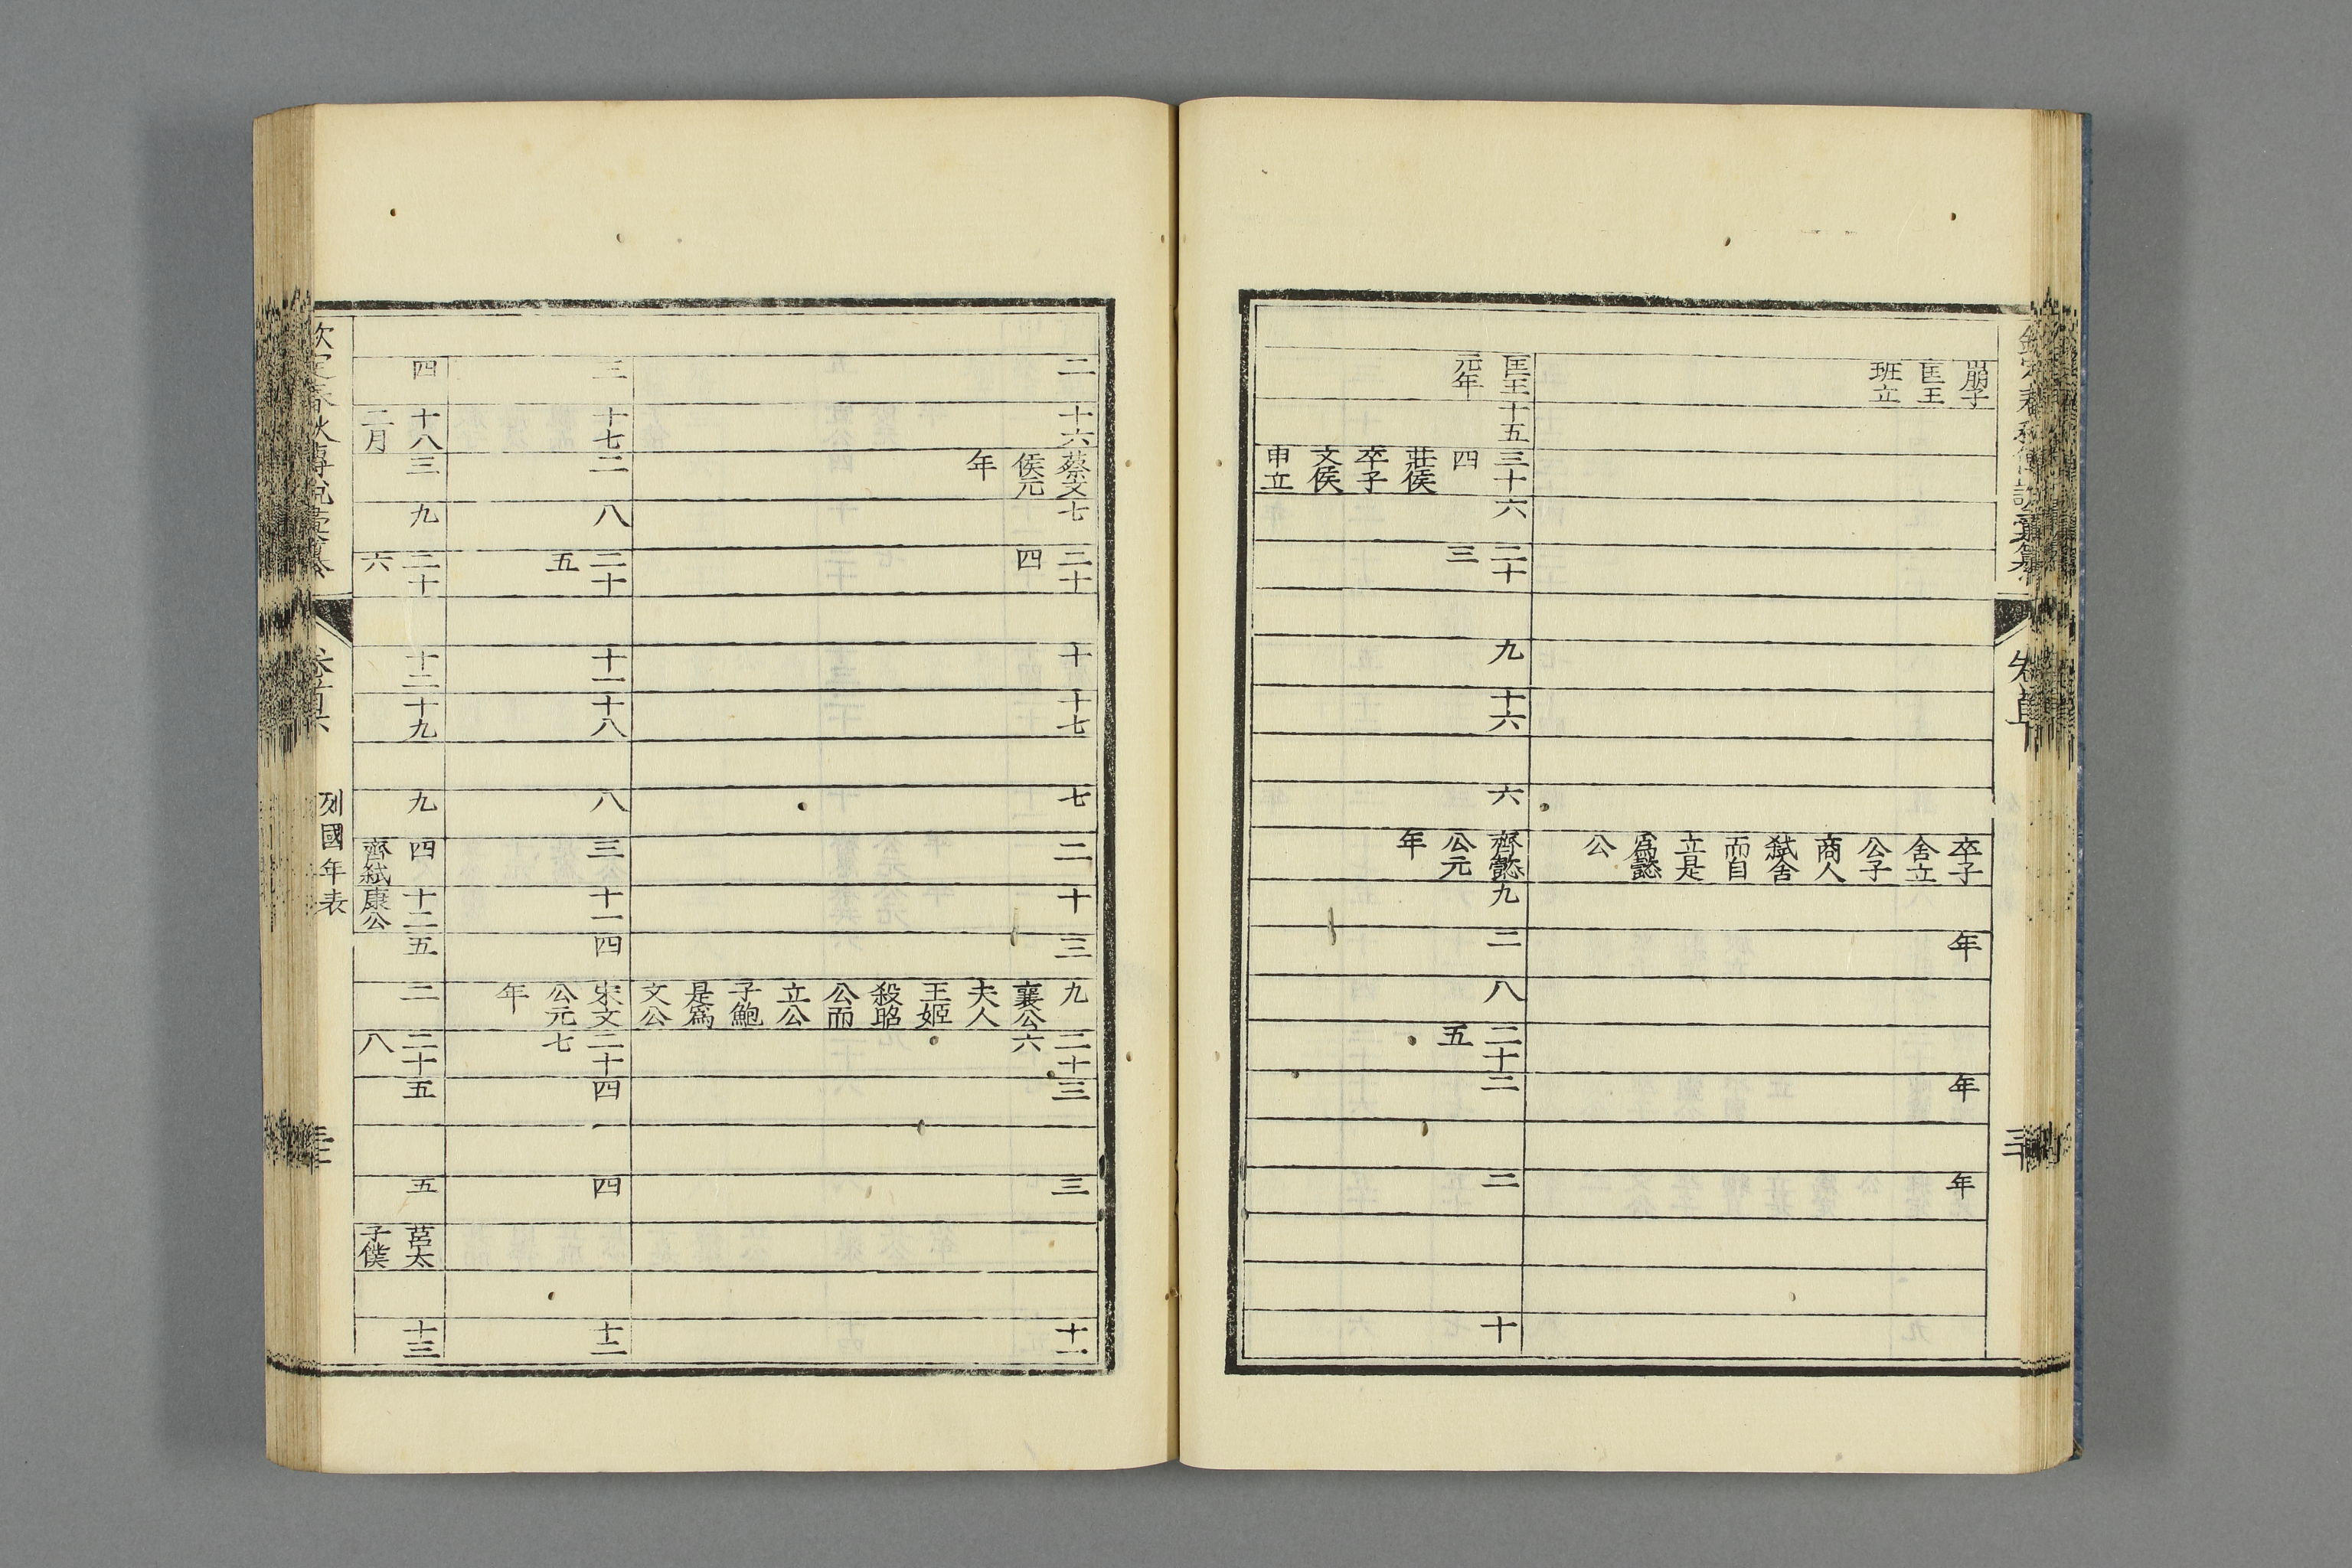 崩子
匡王
班立
卒子
舍立
公子
商人
弑舍
而自
立是
爲懿
公
年
年
年
匡王
元年
十五
三十
四
莊侯
卒子
文侯
申立
六
二十
三
九
十六
六
齊懿
公元
年
九
二
八
二十
五
二
二
十
二
十六
蔡文
侯元
年
七
二十
四
十
十七
七
二
十
三
九
襄公
夫人
王姬
殺昭
公而
立公
子鮑
是爲
文公
二十
六
三
三
十一
三
十七
二
八
二十
五
十一
十八
八
三
十一
四
宋文
公元
年
二十
七
四
四
十二
四
十八
二月
三
九
二十
六
十二
十九
九
四
齊弑
十二
康公
五
二
二十
八
五
五
莒太
子僕
十三
欽定春秋傳說彙纂
列國年表